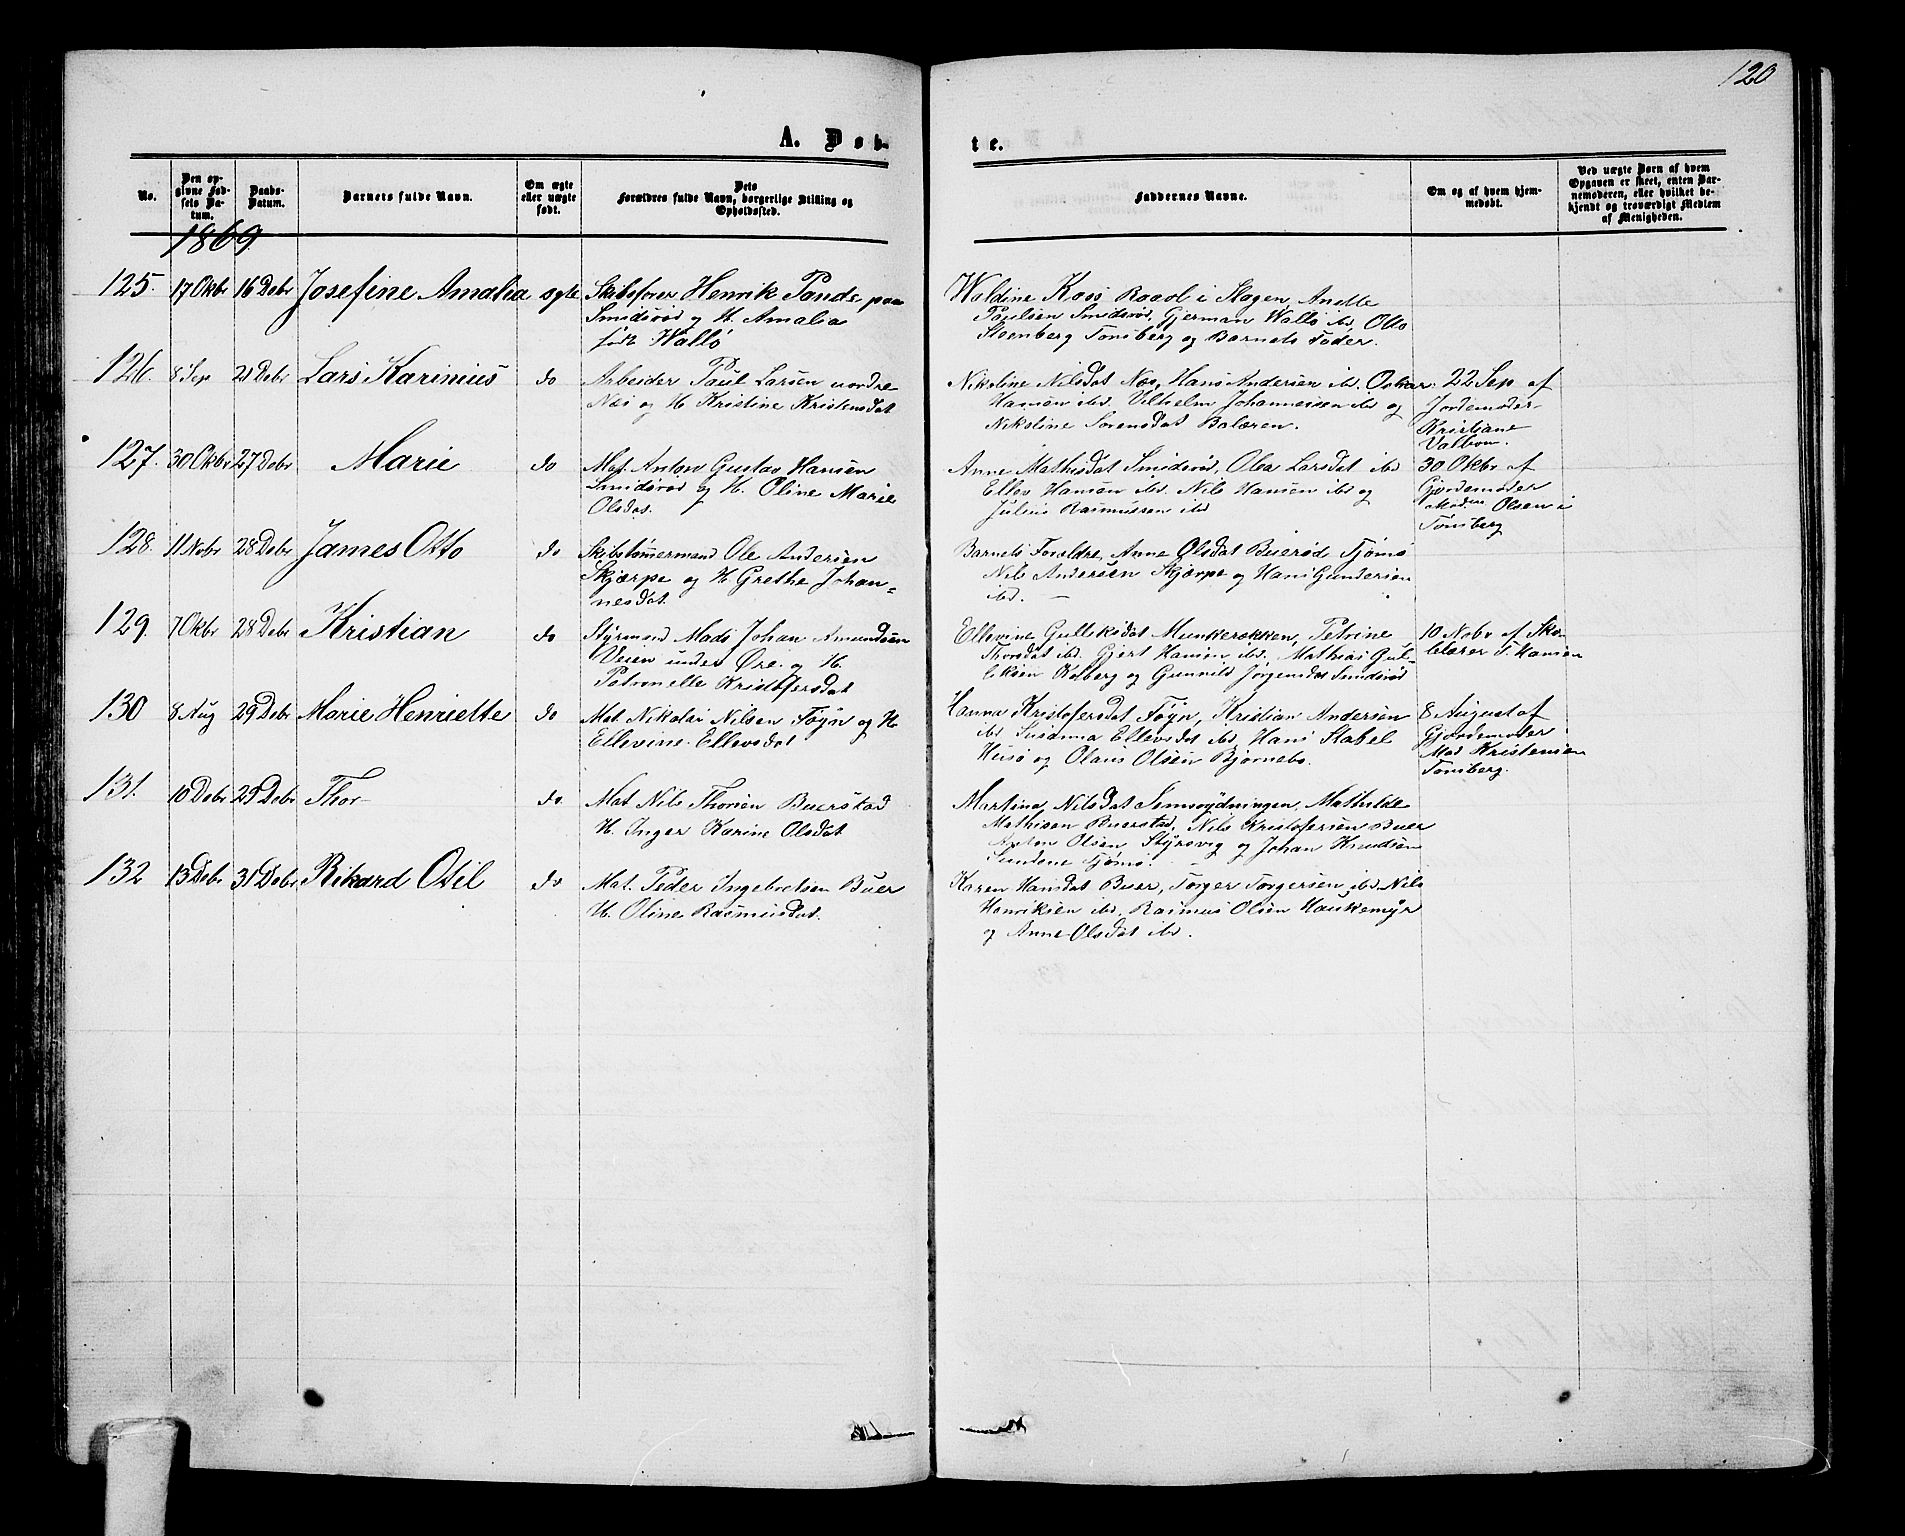 120
A. Døb-
te.
No.
Den op-
givne Fød-
sels Da-
tum.
Daabs-
Datum.
Barnets fulde Navn.
Om ægte
eller uægte
født.
Dets
Forældres fulde Navn, borgerlige Stilling og
Opholdssted.
Faddernes Navne.
Om og af hvem hjem-
medøbt.
Ved uægte Børn af hvem
Opgaven er skeet, enten Bar-
nemoderen, eller hvilket be-
kjendt og troværdigt Medlem
af Menigheden.
1869
125. 17 Okbr 16 Debr Josefine Amalia ægte Skibsfører Henrik Pande paa
Smidsrød og H. Amalia
født Wallø
Waldine Koss Raael i Slagen, Anette
Paulsen Smidsrød, Gjerman Wallø ibd, Otto
Steenberg Tønsberg og Barnets Fader.
126. 8 Sep 21 Debr Lars Karinius do Arbeider Paul Larsen nordre
Næs og H. Kristine Kristensdat
Nikoline Nilsdat Næs, Hans Andersen ibd. Oskar
Hansen ibd. Vilhelm Johannessen ibd og
Nikoline Sørensdat Bolæren.
22 Sep af
Jordemoder
Kristiane
Valbom.
127. 30 Okbr 27 Debr Marie do Mat. Anton Gustav Hansen
Smidsrød og H. Oline Marie
Olsdat.
Anne Mathisdat Smidsrød, Olea Larsdat ibd
Ellev Hansen ibd. Nils Hansen ibd og
Julius Rasmussen ibd
30 Okbr af
Gjordemoder
Mad Olsen i
Tønsberg
128. 11 Nobr 28 Debr James Otto do Skibstømmermand Ole Andersen
Skjærpe og H. Grethe Johan=
nesdat.
Barnets Forældre, Anne Olsdat Buerød Tjømø
Nils Andersen Skjærpe og Hans Gundersen
ibd. —
129. 7 Okbr 28 Debr Kristian do Styrmand Mads Johan Amundsen
Veien under Øre og H.
Petronelle Kristofersdat
Ellevine Gulliksdat Munkerekken, Petrine
Thorsdat ibd. Gjert Hansen ibd, Mathias Gul-
liksen Kolberg og Gunnild Jørgensdat Smidsrød
10 Nobr af Sko-
lelærer T. Hansen
130 8 Aug 29 Debr Marie Henriette do Mat. Nikolai Nilsen Føyn og H.
Ellevine Ellevsdat
Hanna Kristofersdat Føyn, Kristian Andersen
ibd Susanna Ellevsdat ibd, Hans Stabel
Husø og Olaus Olsen Bjørnebo.
8 August af
Gjordemoder
Mad Kristensen
Tønsberg.
131. 10 Debr 29 Debr Thor do. Mat Nils Thorsen Buerstad
H. Inger Karine Olsdat
Martine Nilsdat Semsrydningen, Mathilde
Mathisen Buerstad, Nils Kristofersen Buer
Anton Olsen Styrsvig og Johan Knudsen
Sundene Tjømø.
132 13 Debr 31 Debr Rikard Otil do Mat. Peder Ingebretsen Buer
H. Oline Rasmusdat.
Karen Hansdat Buer, Torger Torgersen ibd. Nils
Henriksen ibd, Rasmus Olsen Haukemyr
og Anne Olsdat ibd.